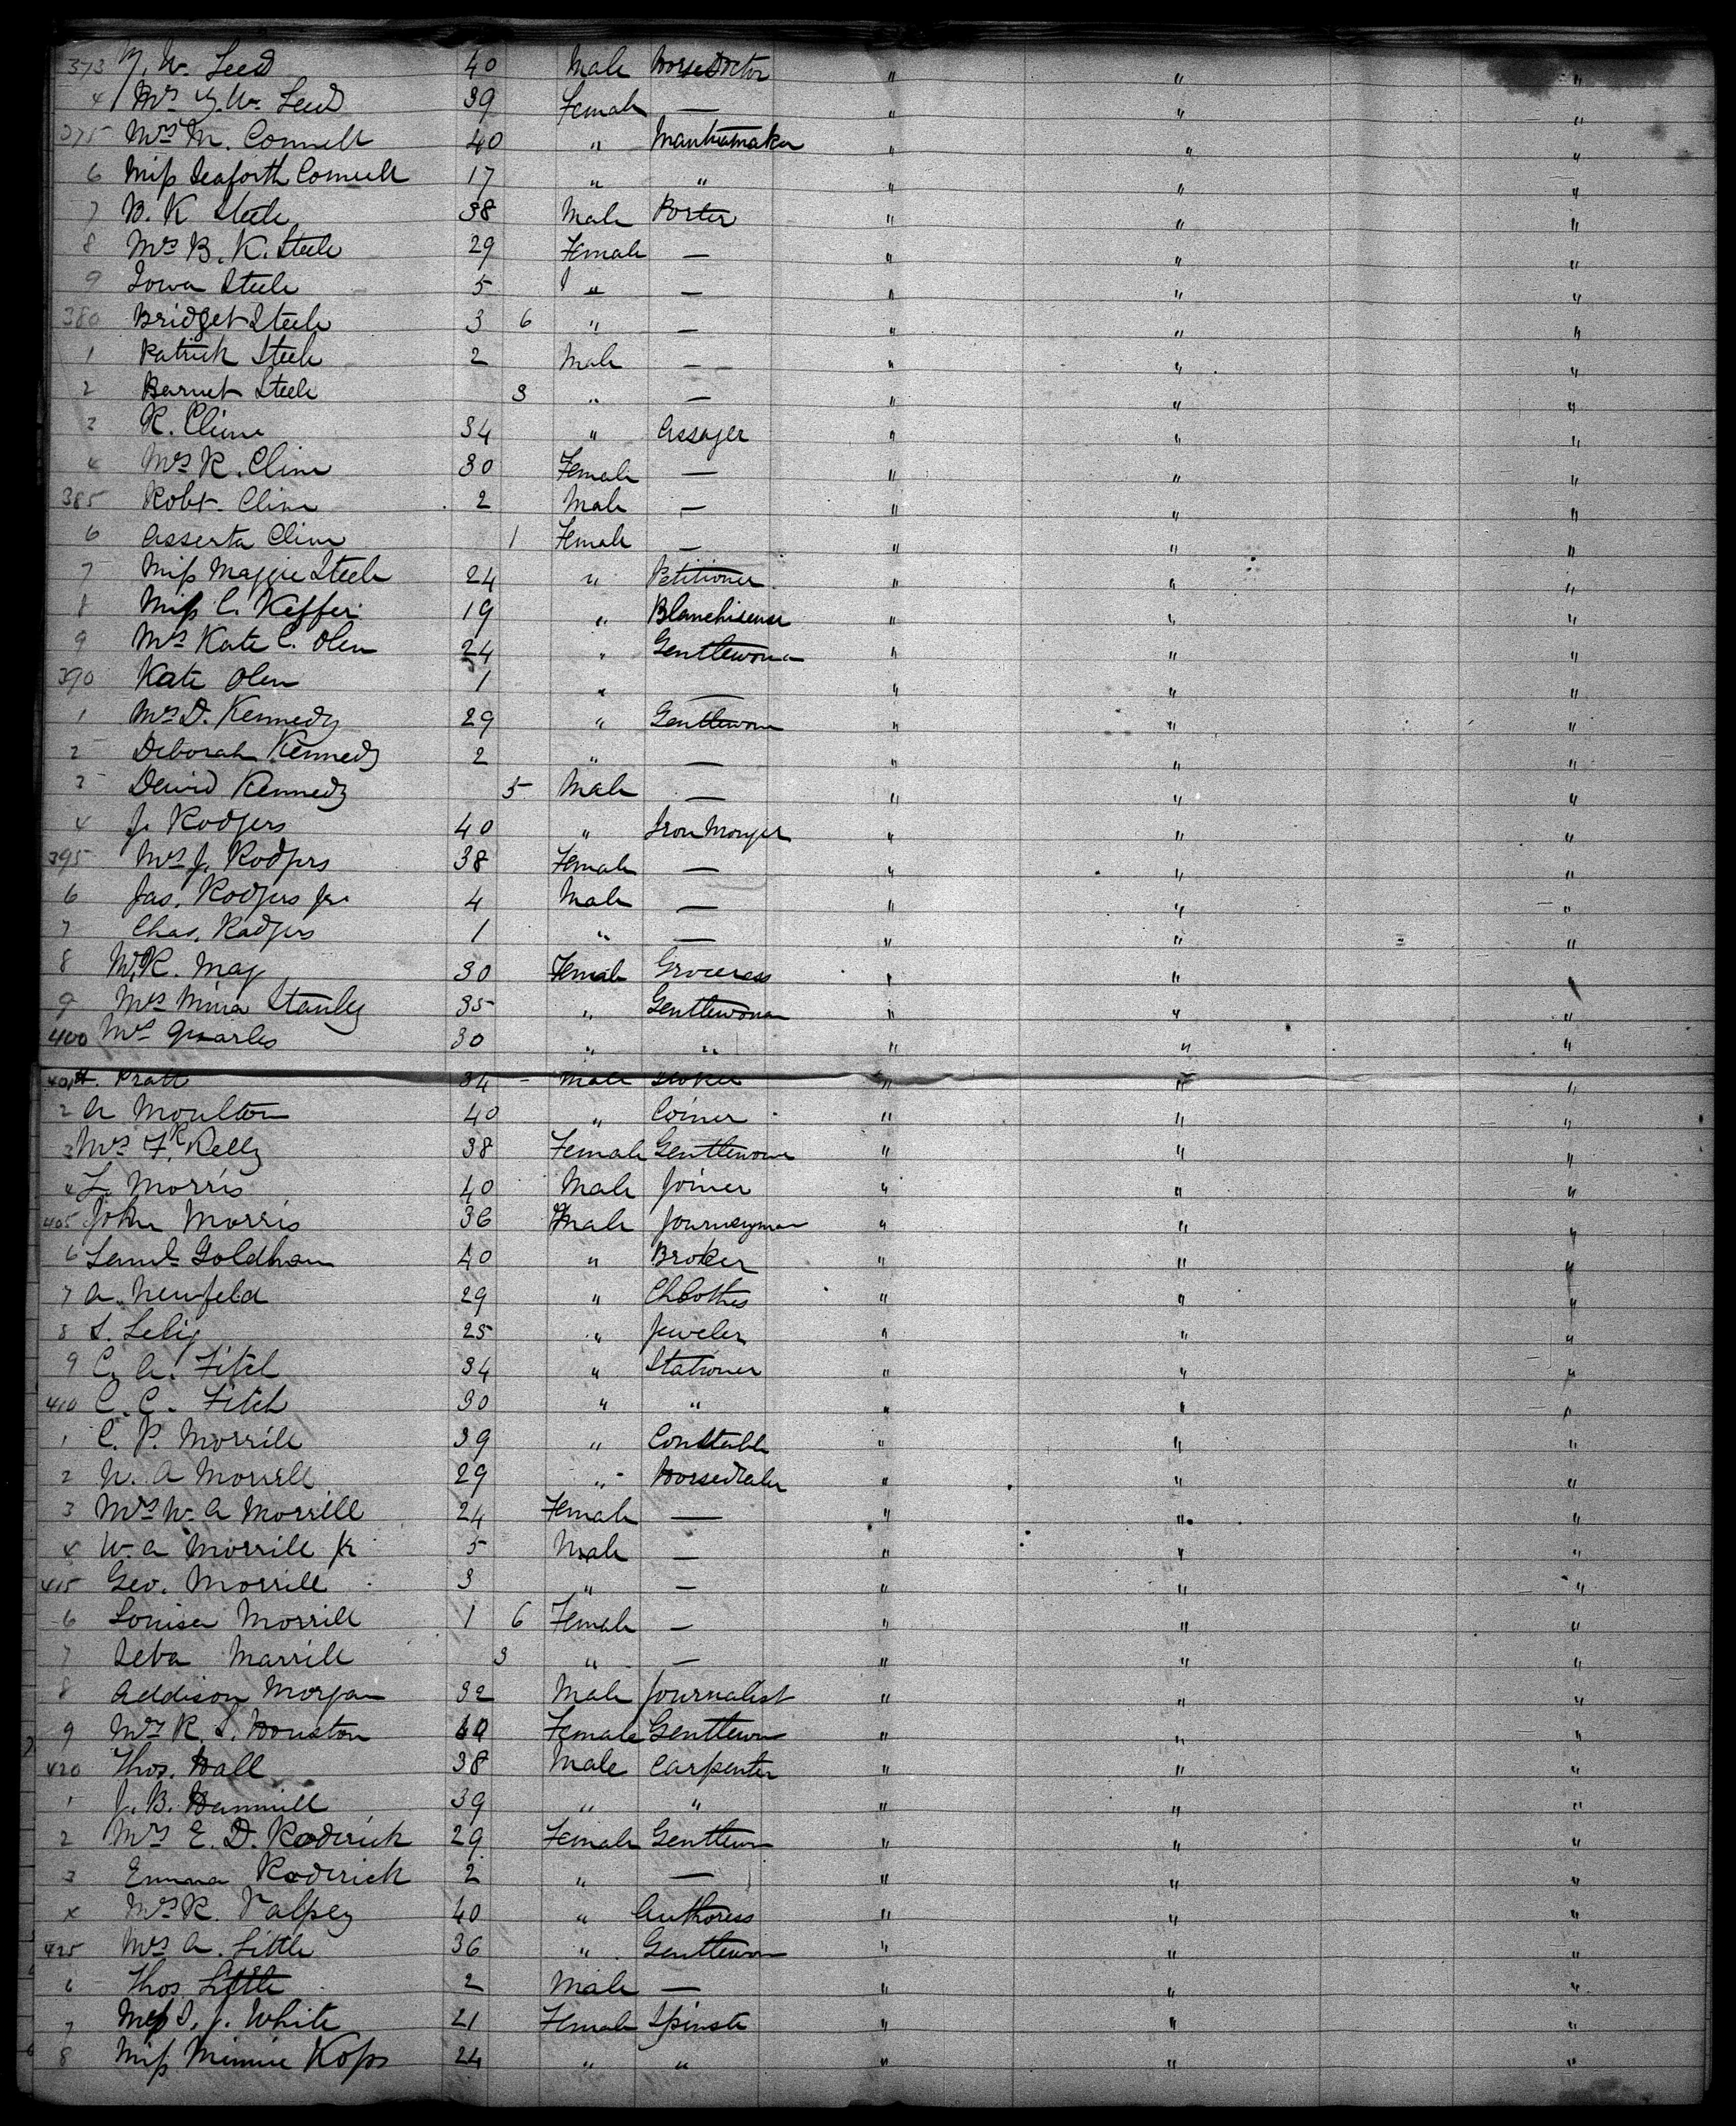 373 W. Leed 40 Male Horse Doctor " " "
4 Mrs W. Leed 39 Female — " " "
375 Mrs M. Connell 40 " Mantuamaker " " "
6 Miss Seaforth Connell 17 " " " " "
7 B. K Steele 38 Male Porter " " "
8 Mrs B. K. Steele 29 Female — " " "
9 Iowa Steele 5 " — " " "
380 Bridget Steele 3 6 " — " " "
1 Patrick Steele 2 Male — " " "
2 Barnet Steele 3 " — " " "
3 R. Cline 34 " Assayer " " "
4 Mrs R. Cline 30 Female — " " "
385 Robt. Cline 2 Male — " " "
6 Asserta Cline 1 Female — " " "
7 Miss Maggie Steele 24 " Petitioner " " "
8 Miss C. Keffer 19 " Blanchiseuse " " "
9 Mrs Kate C. Olen 24 " Gentlewoman " " "
390 Kate Olen 1 " " " "
1 Mrs D. Kennedy 29 " Gentlewom " " "
2 Deborah Kennedy 2 " — " " "
3 David Kennedy 5 Male — " " "
4 J. Rodgers 40 " Iron Monger " " "
395 Mrs J. Rodgers 38 Female — " " "
6 Jas. Rodgers Jr. 4 Male — " " "
7 Chas. Rodgers 1 " — " " "
8 M. R. May 30 Female Groceress " " "
9 Mrs Mina Stanley 35 " Gentlewoman " " "
400 Mrs Quarles 30 " " " " "
401 H. Pratt 34 - Male " " "
2 A Moulton 40 " Coiner " " "
3 Mrs F. R Kelly 38 Female Gentlewom " " "
4 L. Morris 40 Male Joiner " " "
405 John Morris 36 Male Journeyman " " "
6 Saml. Goldham 40 " Broker " " "
7 A. Newfeld 29 " Clothes " " "
8 S. Selig 25 " Jeweler " " "
9 C. A. Fitch 34 " Stationer " " "
410 C. C. Fitch 30 " " " " "
1 C. P. Morrill 39 " Constable " " "
2 W. A Morrill 29 " Horsedealer " " "
3 Mrs W. A Morrill 24 Female — " " "
4 W. A Morrill Jr 5 Male — " " "
415 Geo. Morrill 3 " — " " "
6 Louisa Morrill 1 6 Female — " " "
7 Seba Marrill 3 " — " " "
8 Addison Morgan 32 Male Journalist " " "
9 Mrs R. S. Houston 40 Female Gentlewn " " "
420 Thos. Hall 38 Male Carpenter " " "
1 J. B. Hammill 39 " " " " "
2 Mrs E. D. Roderick 29 Female Gentlewn " " "
3 Emma Roderick 2 " — " " "
4 Mrs R. Valpey 40 " Authoress " " "
425 Mrs A. Little 36 " Gentlewom " " "
6 Thos. Little 2 Male — " " "
7 Miss S. J. White 21 Female Spinste " " "
8 Miss Minnie Kops 24 " " " " "